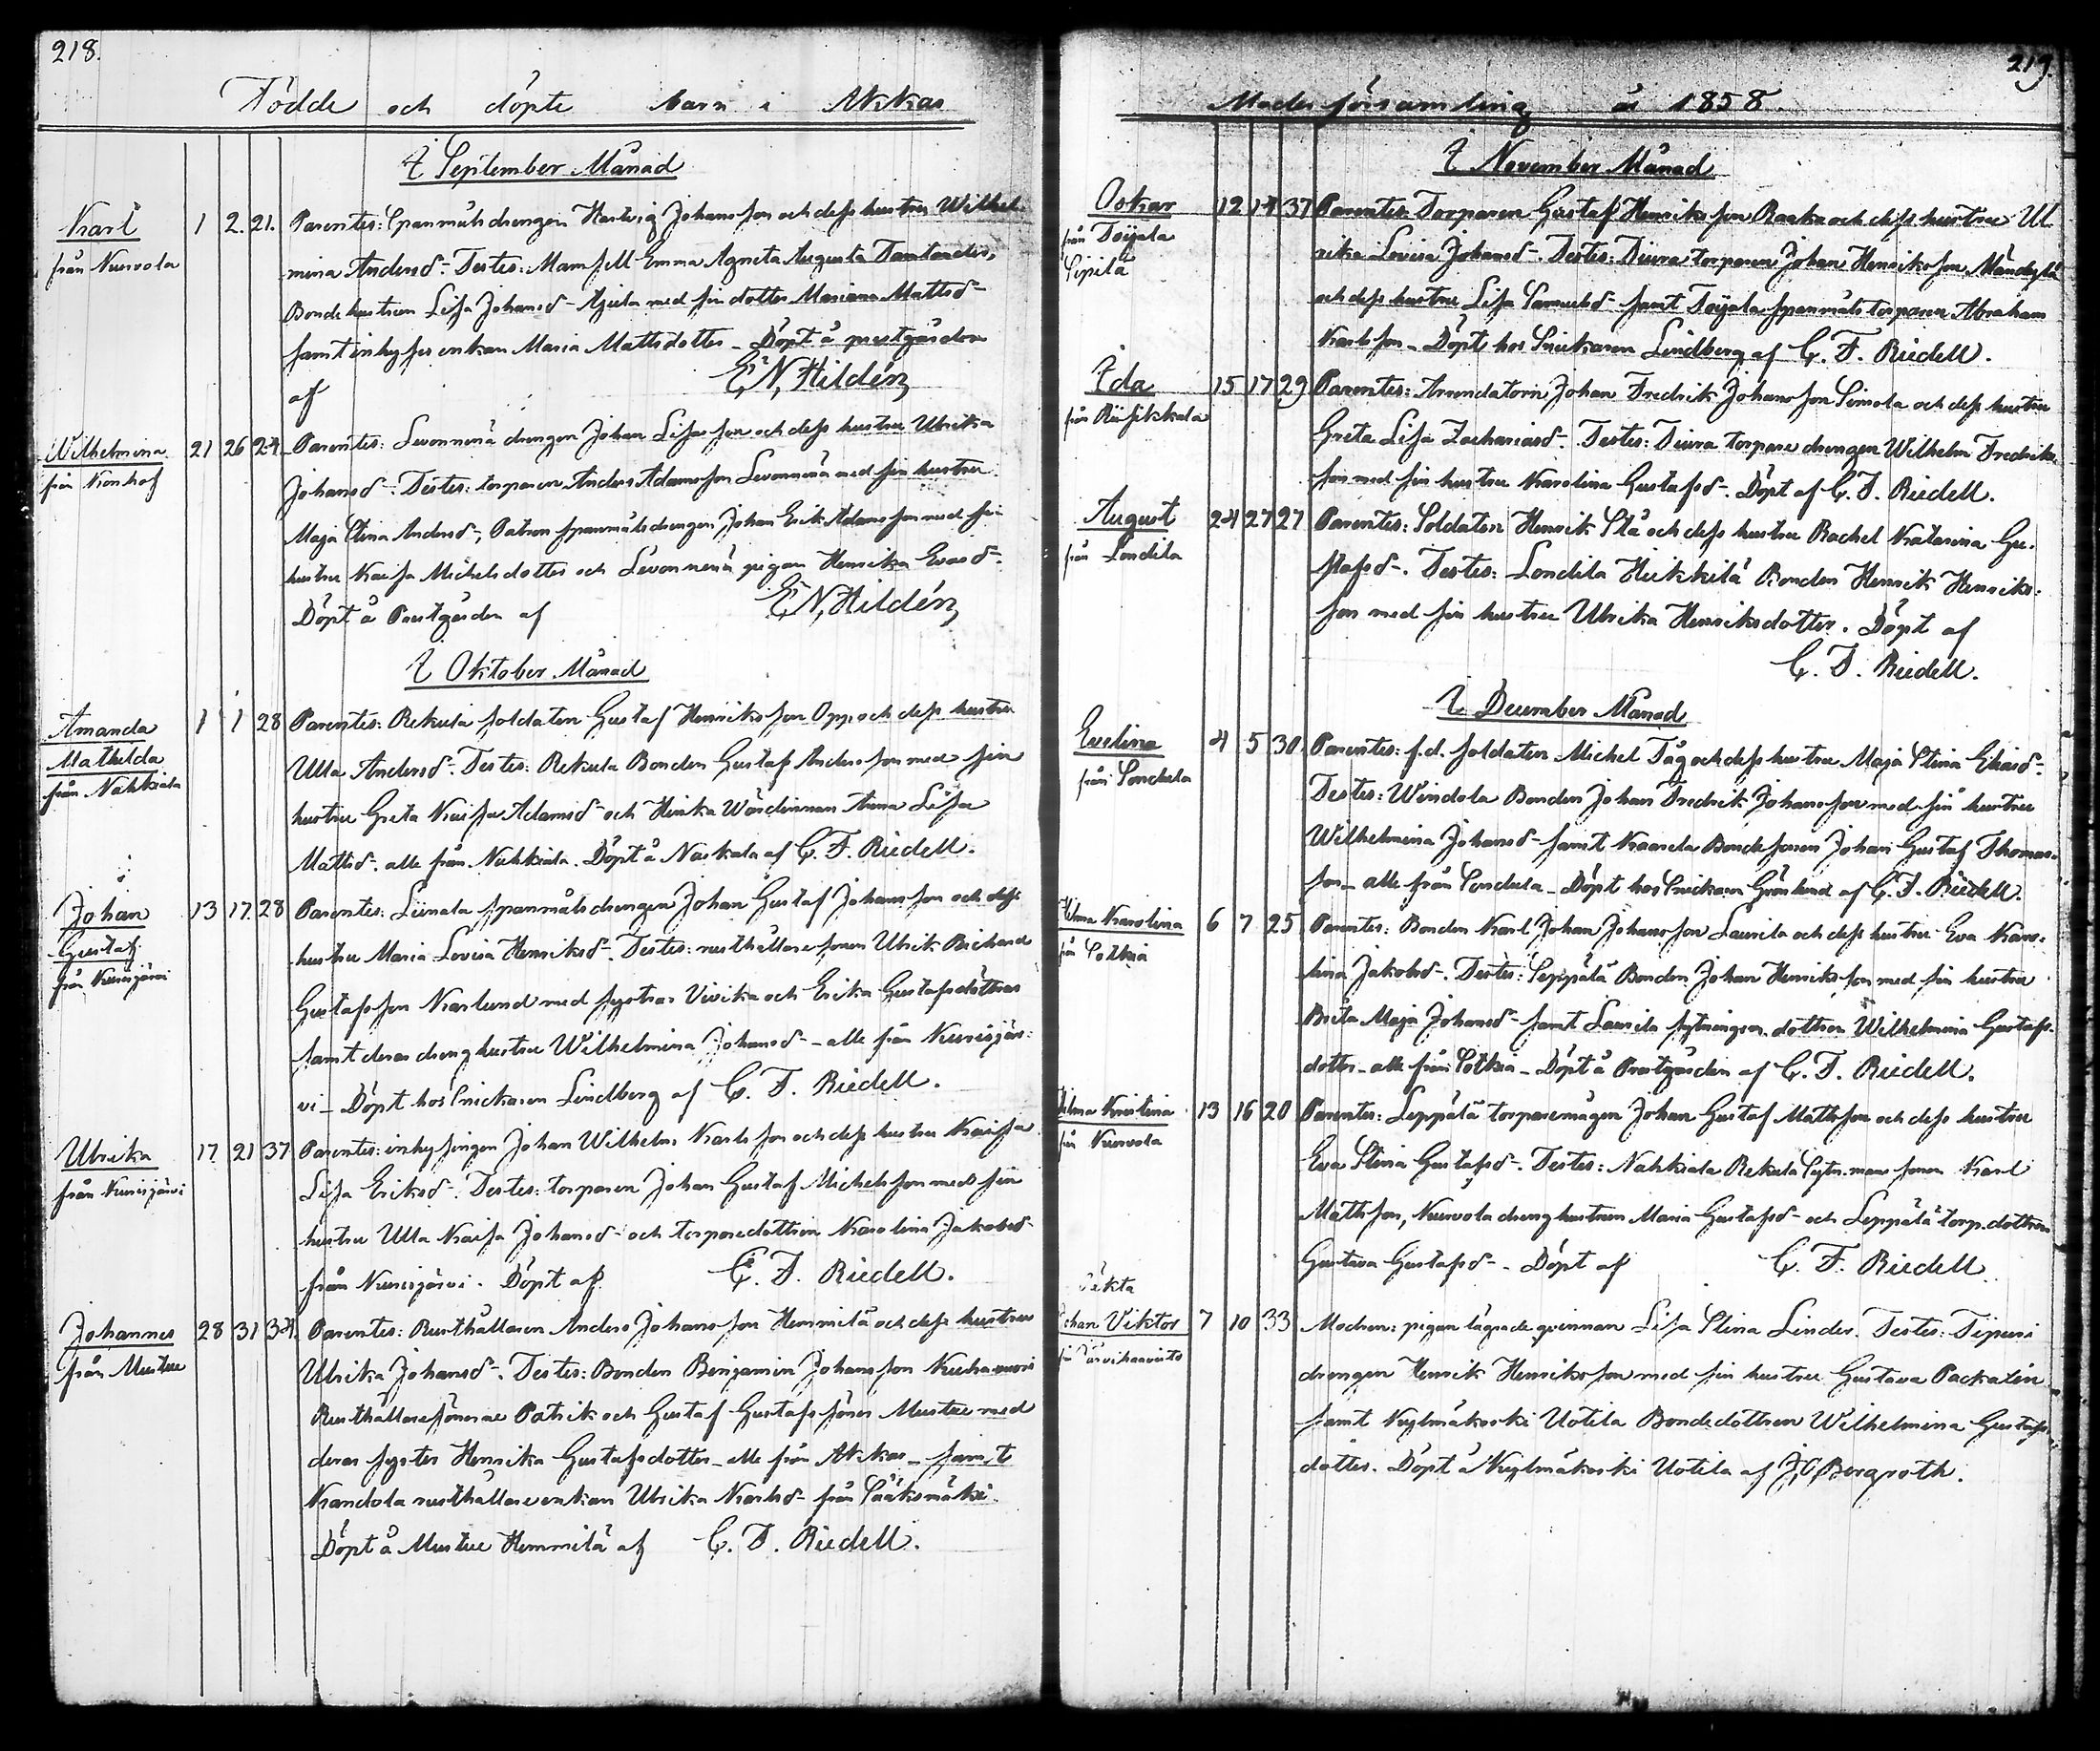 218.
Födde och döpte barn i Akkas
I September Månad
Karl 1 2. 21. Parentes: Spanmåls drengen Hartvig Johansson och dess hustru Wilhel-
från Kurvola mina Andersd-. Testes: Mamsell Emma Agneta Augusta
Bonde hustrun Lisa Johansd- med sin dotter Mariana Mattsd-
samt inhyses enkan Maria Mattsdotter - Döpt å prestgården
af E N, Hildén
Wilhelmina 21 26 24. Parentes: Levonmenä drengen Johan Lisasson och dess hustru Ulrika
från Konhof Johansd-. Testes: torparen Anders Adamsson Levonmenä med sin hustru
Maja Stina Andersd-, spanmåls drengen Johan Erik Adamsson med sin
hustru Kaisa Michelsdotter och Levonmenä pigan Henrika Evasd-.
Döpt å Prestgården af E N, Hildén
I Oktober Månad
Amanda 1 1 28 Parentes: Rekula soldaten Gustaf Henriksson Opp och dess hustru
Mathilda Ulla Andersd-. Testes: Rekula Bonden Gustaf Andersson med sin
från Nahkiala hustru Greta Kaisa Adamsd- och Heinka Wärdinnan Anna Lisa
Mattsd-. alla från Nahkiala. Döpt å Naskala af C. F. Riedell.
Johan 13 17. 28 Parentes: Liinala spanmåls drengen Johan Gustaf Johansson och dess
Gustaf hustru Maria Lovisa Henriksd-. Testes: rusthållare sonen Ulrik Richard
från Kurisjärvi Gustafsson Karlund med systrar Vivika och Erika Gustafsdöttrar
samt deras dreng hustru Wilhelmina Johansd- - alle från Kurisjär-
vi - Döpt hos Snickaren Lindberg af C. F. Riedell.
Ulrika 17. 21 37 Parentes: inhysingen Johan Wilhelm Karlsson och dess hustru Kaisa
från Kurisjärvi Lisa Eriksd-. Testes: torparen Johan Gustaf Michelsson med sin
hustru Ulla Kaisa Johansd- och torparedottren Karolina Jakobsd-
från Kurisjärvi. Döpt af C. F. Riedell.
Johannes 28 31 34. Parentes: Rusthållaren Anders Johansson Hemmilä och dess hustru
från Mustue Ulrika Johansd-. Testes: Bonden Benjamin Johansson
Rusthållaresönerne Patrik och Gustaf Gustafssöner Mustue med
deras syster Henrika Gustafsdotter - alle från Akkas - samt
Kandola rusthållareenkan Ulrika Karlsd- från Sääksmäki.
Döpt å Mustue Hemmilä af C. F. Riedell.
219.
Moder församling år 1858.
I November Månad
Oskar 12 14 37 Parentes: Torparen Gustaf Henriksson Raaka och dess hustru Ul
från Toijala rika Lovisa Johansd-. Testes: Diura torparen Johan Henriksson
Sipilä och dess hustru Lisa Samuelsd- samt Toijala spanmåls torparen Abraham
Karlsson - Döpt hos Snickaren Lindberg af C. F. Riedell.
Ida 15 17 29 Parentes: Arrendatorn Johan Fredrik Johansson Simola och dess hustru
från Riisikkala Greta Lisa Zachariasd-. Testes: Diura torpare drengen Wilhelm Fredriks
son med sin hustru Karolina Gustafsd-. Döpt af C. F. Riedell.
August 24 27 27 Parentes: Soldaten Henrik Stå och dess hustru Rachel Katarina Gu-
från Londila stafsd-. Testes: Londila Heikkilä Bonden Henrik Henriks-
son med sin hustru Ulrika Henriksdotter. Döpt af
C. F. Riedell.
I December Månad
Evelina 4 5 30. Parentes: f. d. soldaten Michel Tåg och dess hustru Maja Stina Eliasd-.
från Sonckula Testes: Windola Bonden Johan Fredrik Johansson med sin hustru
Wilhelmina Johansd- samt Kaarela Bondesonen Johan Gustaf Thomas-
son - alle från Sonckula - Döpt hos Snickaren Grönlund af C. F. Riedell.
Hilma Karolina 6 7 25 Parentes: Bonden Karl Johan Johansson Laurila och dess hustru Eva Karo-
från Sotkia lina Jakobsd-. Testes: Seppälä Bonden Johan Henriksson med sin hustru
Brita Maja Johansd- samt Laurila sytningsm. dottren Wilhelmina Gustafs-
dotter - alle från Sotkia - Döpt å Prestgården af C. F. Riedell.
Kristina 13 16 20 Parentes: Leppälä torparemågen Johan Gustaf Mattsson och dess hustru
från Kurvola Eva Stina Gustafsd-. Testes: Nahkiala Rekula Sytn.mans sonen Karl
Mattsson, Kurvola dreng hustrun Maria Gustafsd- och Leppälä torp. dottren
Gustava Gustafsd- - Döpt af C. F. Riedell.
Oäkta
Johan Viktor 7 10 33 Modren: pigan lägrade qvinnan Lisa Stina Linder. Testes:
från drengen Henrik Henriksson med sin hustru Gustava Packalin
samt Kylmäkoski Uotila Bondedottren Wilhelmina Gustafs-
dotter. Döpt å Kylmäkoski Uotila af Bergroth.